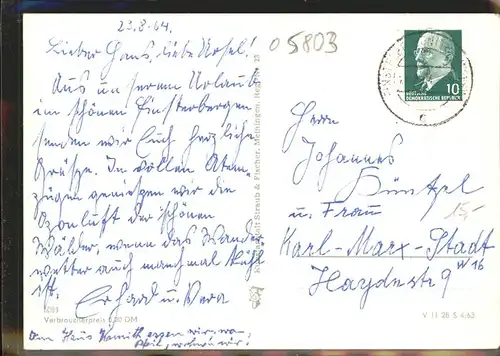 23.8.64.
Lieber Hans, liebe Rosel!
Aus unserem Urlaub
im schönen Finsterbergen
senden wir Euch herzliche
Grüße. In vollen Atem-
zügen genießen wir die
Ozonluft der schönen
Wälder, wenn das Wander-
wetter auch manchmal kühl
ist.
Erhard u. Vera
Verbraucherpreis 0,20 DM
Im Haus
essen wir,
wohnen wir!
05803
Straub & Fischer, Meiningen,
10
DEUTSCHE
DEMOKRATISCHE REPUBLIK
Herrn
Johannes
Küntzel
u. Frau
15,-
Karl-Marx-Stadt
W 16
Haydnstr 9
V 11 28 S 4/63